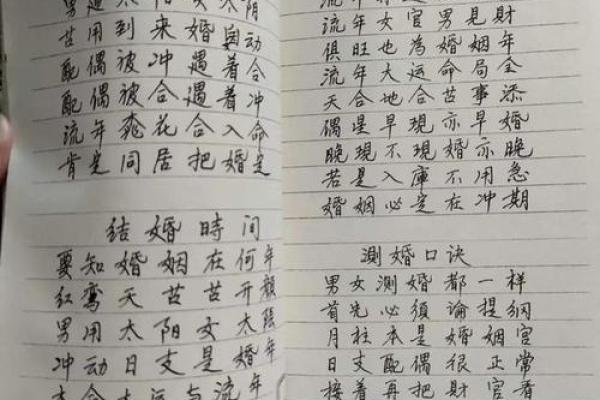 男 太阳女太阴
苦用到来婚 动
配偶被冲遇着合
配偶被合遇着冲
流年桃花合入命
肯定同居把婚定
结婚時间
要知婚姻在何年
红鸾天 苦开顏
男用太阳女太陰
冲动日支是婚年
大运与流年
流年女官男見財
俱旺也為婚姻年
流年大运命局全
天合地合苦事添
偶星早現亦早婚
晚現不現婚亦晚
若是入庫不用急
婚姻必定在冲期
測婚口诀
男女測婚都一样
首先必須論提纲
月柱本是婚姻宫
日支配偶很正常
接着再把財官看